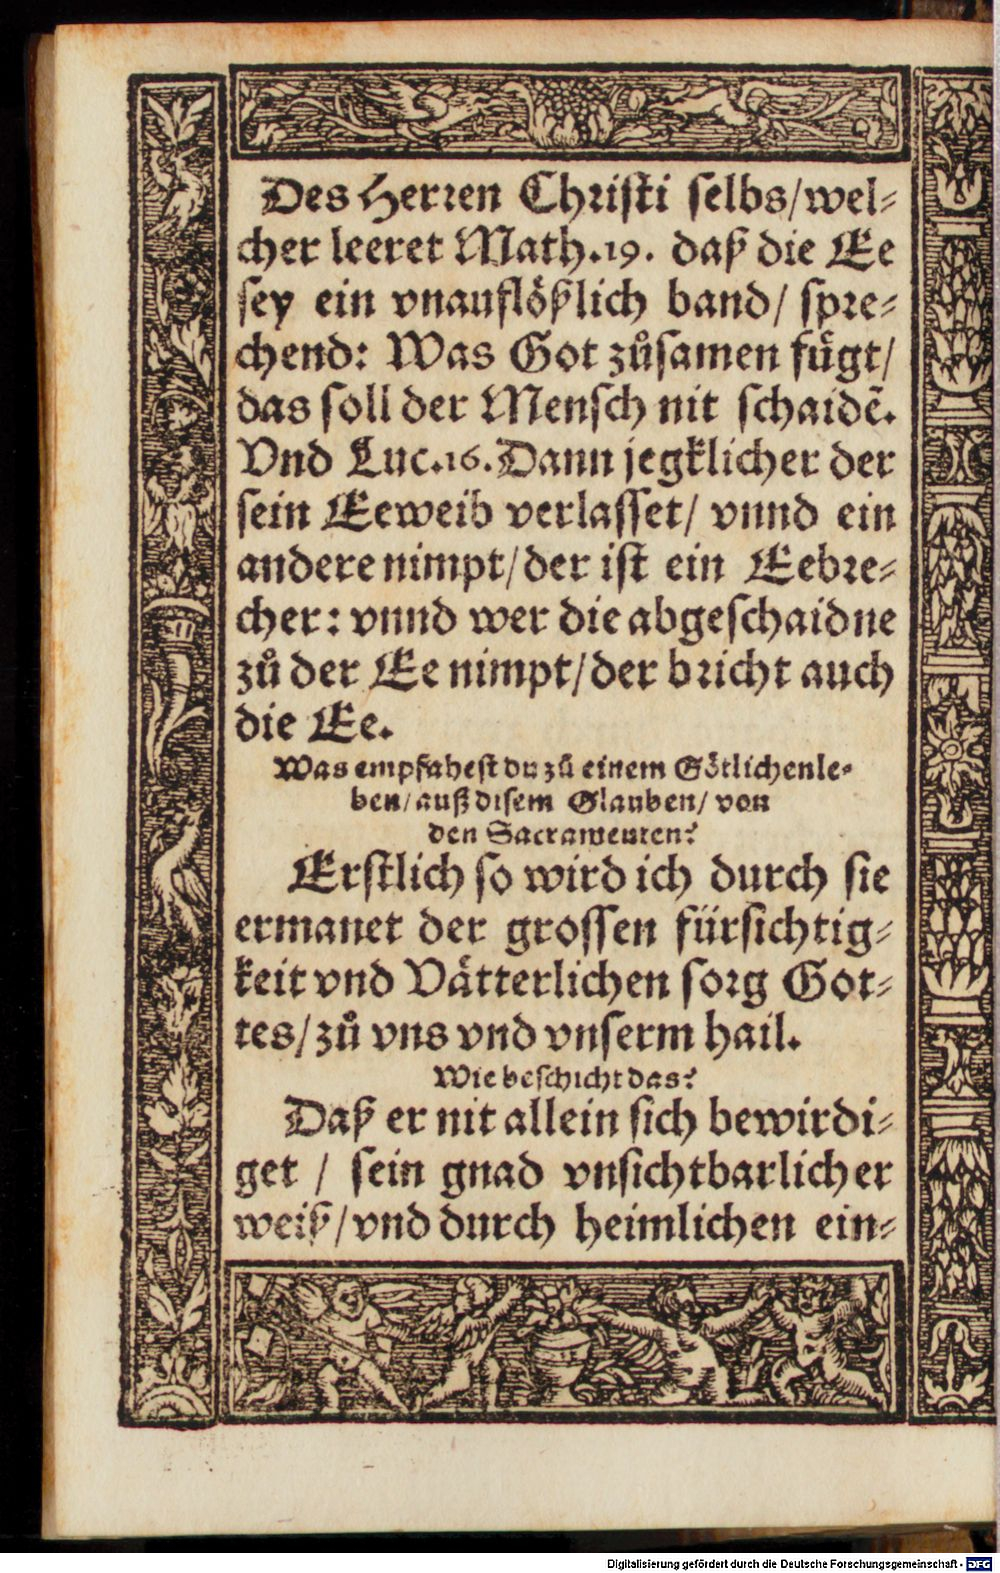 Des Herren Christi selbs/wel⸗
cher leeret Math.19. daß die Ee
sey ein vnauflößlich band/ spre⸗
chend: Was Got zůsamen fügt/
das soll der Mensch nit schaidē.
Vnd Luc.16. Dann jegklicher der
sein Eeweib verlasset/ vnnd ein
andere nimpt/der ist ein Eebre⸗
cher: vnnd wer die abgeschaidne
zů der Ee nimpt/der bricht auch
die Ee.
Was empfahest du zů einem Götlichen le⸗
ben/ auß disem Glauben/ von
den Sacramenten?
Erstlich so wird ich durch sie
ermanet der grossen fürsichtig⸗
keit vnd Vätterlichen sorg Got⸗
tes/zů vns vnd vnserm hail.
Wie beschicht das?
Daß er nit allein sich bewirdi⸗
get / sein gnad vnsichtbarlicher
weiß/vnd durch heimlichen ein⸗
Digitalisierung gefördert durch die Deutsche Forschungsgemeinschaft - DFG